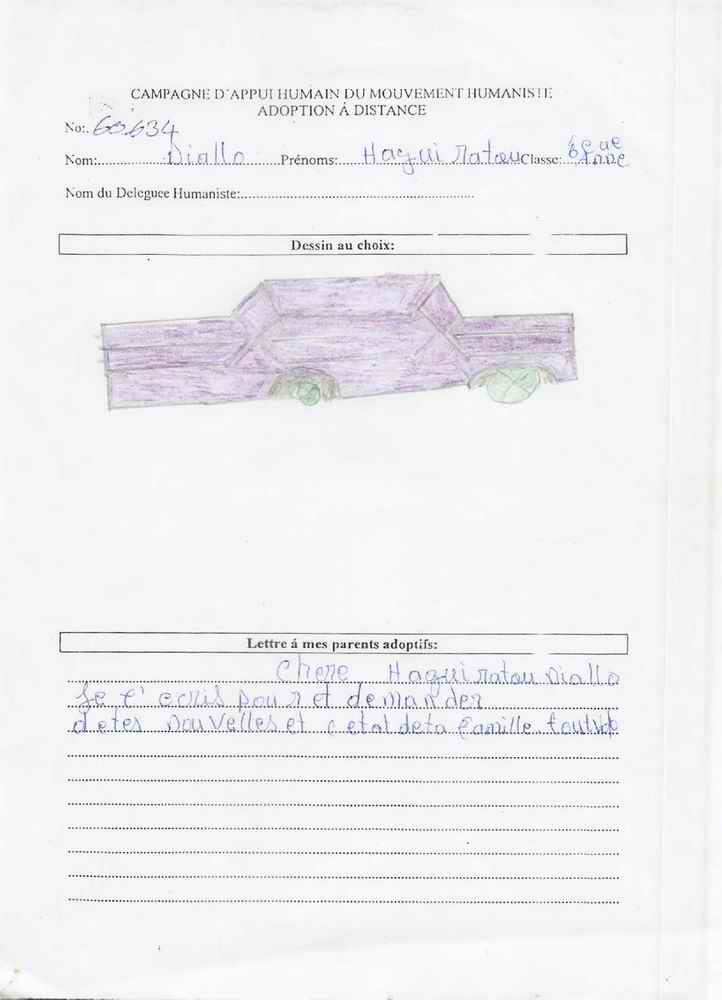 CAMPAGNE D'APPUI HUMAIN DU MOUVEMENT HUMANISTE
ADOPTION Á DISTANCE
No:. 60.634
Nom:..................Diallo......Prénoms:....Hagui Ratou Classe: 6e ae Anne
Nom du Deleguee Humaniste:..........................................................
Dessin au choix:
Lettre á mes parents adoptifs:
Chere Haguiratou Diallo
Je t' ecris pour et demander
detes nouvelles et cetat deta famille. tout